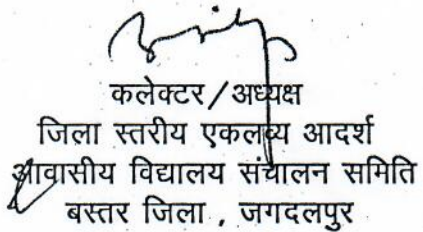 कलेक्टर/अध्यक्ष
जिला स्तरीय एकलव्य आदर्श
आवासीय विद्यालय संचालन समिति
बस्तर जिला , जगदलपुर